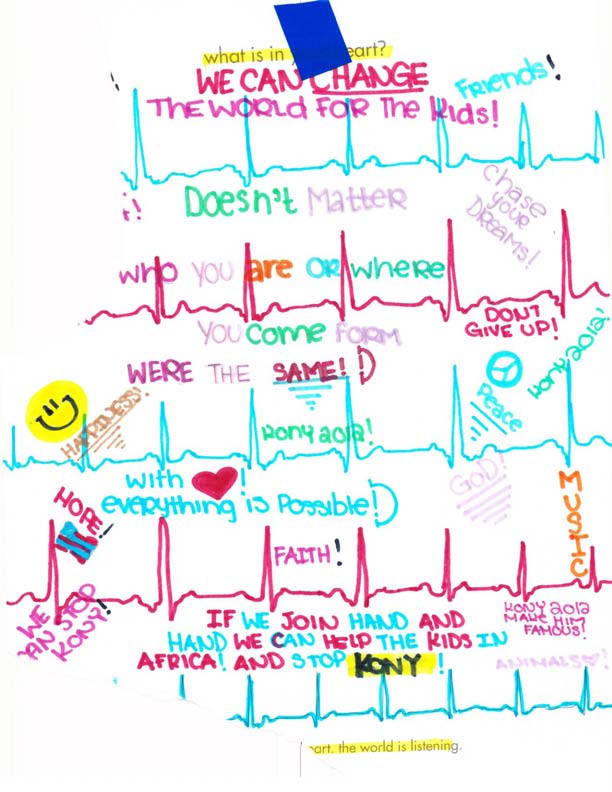 what is in heart?
WE CAN CHANGE
THE WORLD FOR THE Kids!
Friends!
Doesn't Matter
CHASE
YOUR
DREAMS!
WHO YOU are OR WHERE
DON'T
GIVE UP!
YOU COME FORM
WERE THE SAME! :)
KONY 2012!
Peace
HAPPINESS!
KONY 2012!
With ❤!
everything is Possible! :)
GOD!
MUSIC
HOPE!
FAITH!
WE
AN STOP
KONY!
IF WE JOIN HAND AND
HAND WE CAN HELP THE KIDS IN
AFRICA! AND STOP KONY!
KONY 2012
MAKE HIM
FAMOUS!
ANIMALS ♡!
eart. the world is listening.